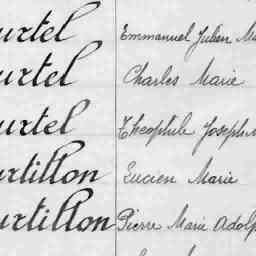 urtel Emmanuel Julien
urtel Charles Marie
urtel Théophile Joseph
urtillon Lucien Marie
urtillon Pierre Marie Adolp